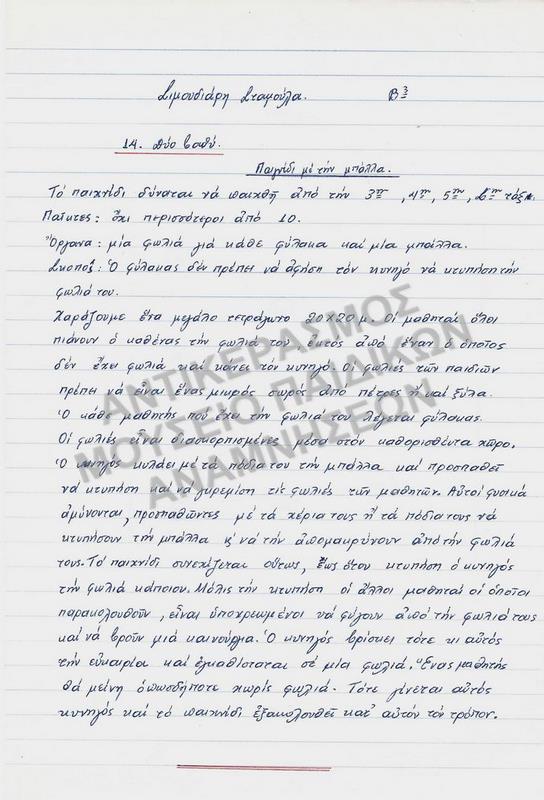 Σιμουδιάρη Σταμούλα. Β3
14. Δύο βαθύ.
Παιγνίδι μέ τήν μπάλλα.
Τό παιχνίδι δύναται νά παιχθῆ ἀπό τήν 3ην, 4ην, 5ην, 6ην τάξι.
Παῖκτες: ὄχι περισσότεροι ἀπό 10.
Ὄργανα: μία φωλιά γιά κάθε φύλακα καί μία μπάλλα.
Σκοπός: Ὁ φύλακας δέν πρέπει νά ἀφήση τόν κυνηγό νά κτυπήση τήν
φωλιά του.
Χαράζουμε ἕνα μεγάλο τετράγωνο 20×20 μ. Οἱ μαθηταί ὅλοι
πιάνουν ὁ καθένας τήν φωλιά του, ἐκτός ἀπό ἕναν ὁ ὁποῖος
δέν ἔχει φωλιά καί κάνει τόν κυνηγό. Οἱ φωλιές τῶν παιδιῶν
πρέπει νά εἶναι ἕνας μικρός σωρός ἀπό πέτρες ἤ καί ξύλα.
Ὁ κάθε μαθητής πού ἔχει τήν φωλιά του λέγεται φύλακας.
Οἱ φωλιές εἶναι διασκορπισμένες μέσα στόν καθορισθέντα χῶρο.
Ὁ κυνηγός κυλάει μέ τά πόδια του τήν μπάλλα καί προσπαθεῖ
νά κτυπήση καί νά γκρεμίση τίς φωλιές τῶν μαθητῶν. Αὐτοί φυσικά
ἀμύνονται, προσπαθῶντες μέ τά χέρια τους ἤ τά πόδια τους νά
κτυπήσουν τήν μπάλλα κ' νά τήν ἀπομακρύνουν ἀπό τήν φωλιά
τους. Τό παιχνίδι συνεχίζεται οὕτως, ἕως ὅτου κτυπήση ὁ κυνηγός
τήν φωλιά κάποιου. Μόλις τήν κτυπήση οἱ ἄλλοι μαθηταί οἱ ὁποῖοι
παρακολουθοῦν, εἶναι ὑποχρεωμένοι νά φύγουν ἀπό τήν φωλιά τους
καί νά βροῦν μιά καινούργια. Ὁ κυνηγός βρίσκει τότε κι αὐτός
τήν εὐκαιρία καί ἐγκαθίσταται σέ μία φωλιά. Ἕνας μαθητής
θά μείνη ὁπωσδήποτε χωρίς φωλιά. Τότε γίνεται αὐτός
κυνηγός καί τό παιχνίδι ἐξακολουθεῖ κατ' αὐτόν τόν τρόπον.
ΑΝΤΙΚΕΡΑΣΜΟΣ
ΜΟΥΣΕΙΟ ΠΑΙΔΙΚΩΝ
ΑΝΑΜΝΗΣΕΩΝ